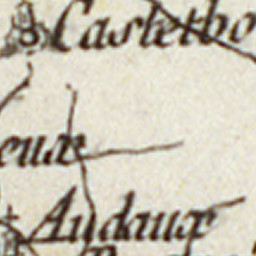 Castetbo
euæ
Audauæ